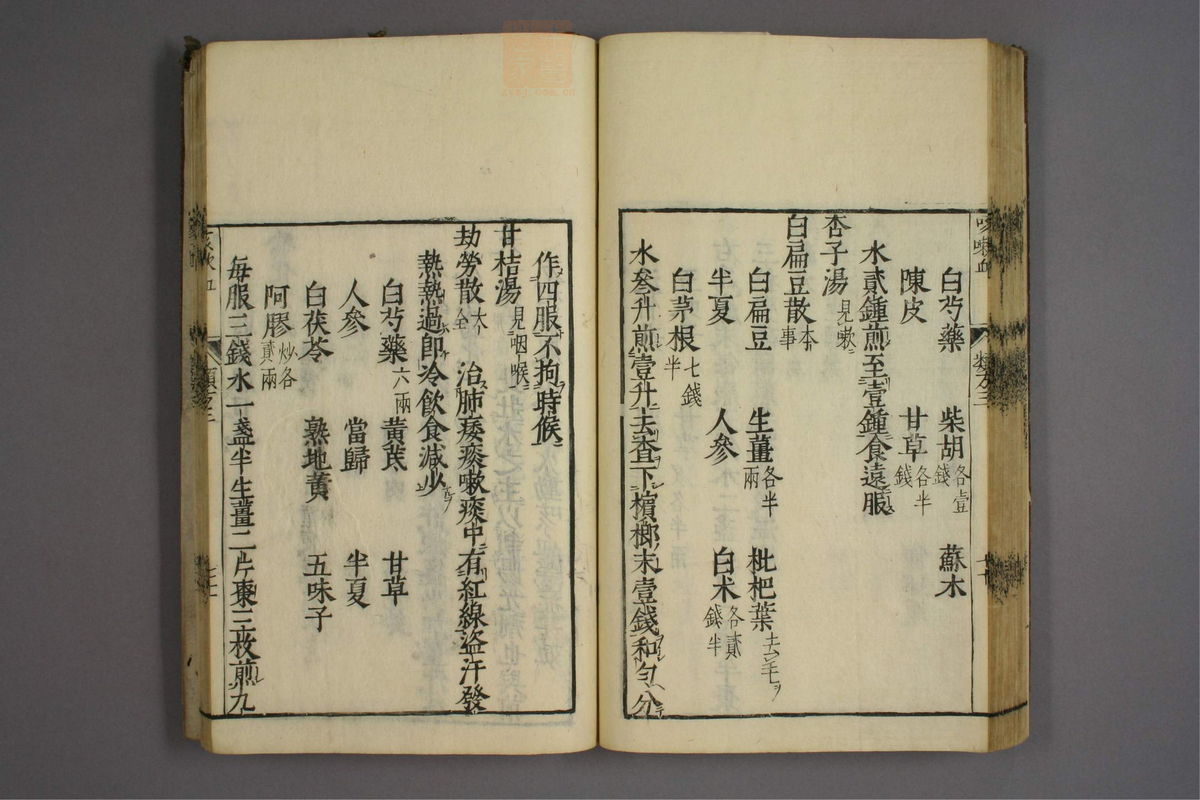 白芍藥 柴胡各壹錢 蘇木
陳皮 甘草各半錢
水貳鍾煎至壹鍾食遠服
杏子湯見嗽
白扁豆散本事
白扁豆 生薑各半兩 枇杷葉去毛
半夏 人參 白朮各貳錢半
白茅根七錢半
水參升煎壹升去查下檳榔末壹錢和勻分
作四服不拘時候
甘桔湯見咽喉
劫勞散大全 治肺痿痰嗽痰中有紅線盜汗發
熱熱過卽冷飲食減少
白芍藥六兩 黃芪 甘草
人參 當歸 半夏
白茯苓 熟地黃 五味子
阿膠炒各貳兩
每服三錢水一盞半生薑二片棗三枚煎九